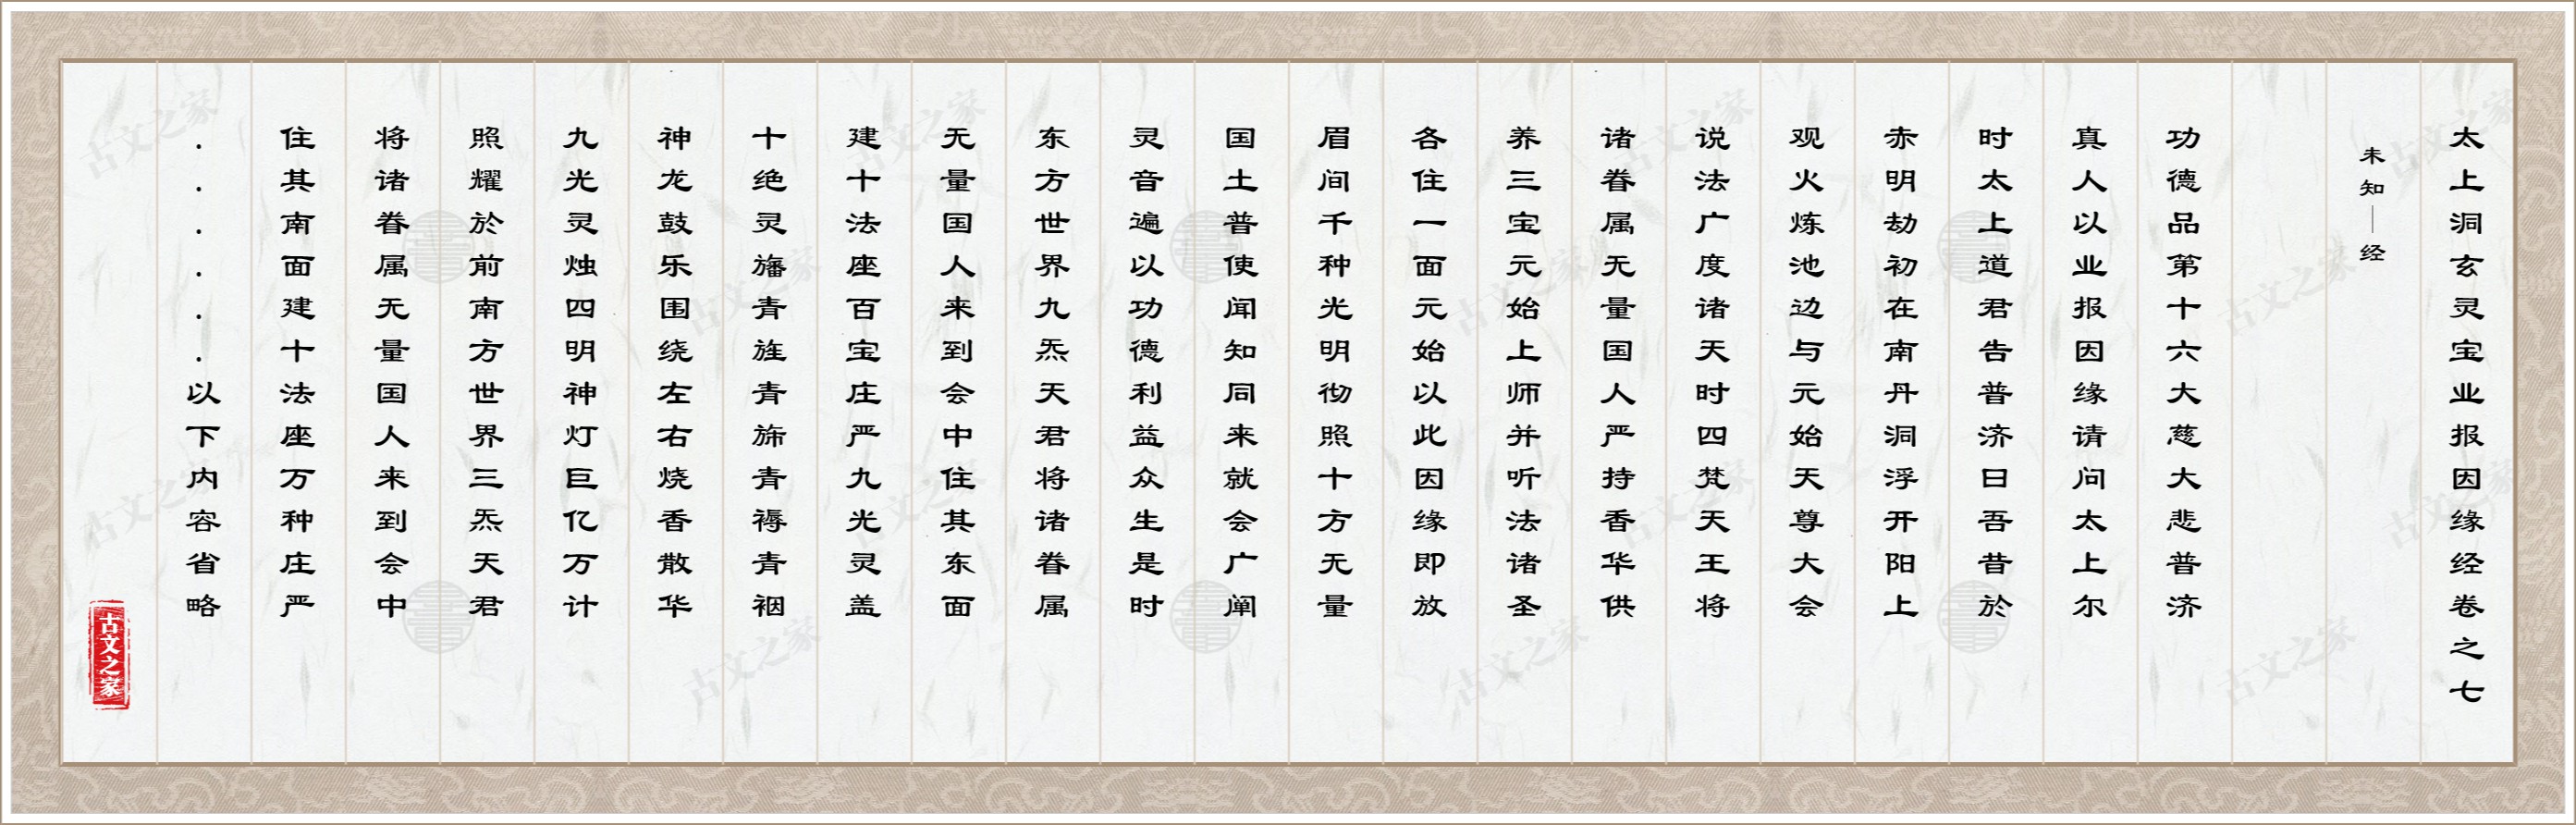 太上洞玄灵宝业报因缘经卷之七
未知｜经
功德品第十六大慈大悲普济
真人以业报因缘请问太上尔
时太上道君告普济曰吾昔於
赤明劫初在南丹洞浮开阳上
观火炼池边与元始天尊大会
说法广度诸天时四梵天王将
诸眷属无量国人严持香华供
养三宝元始上师并听法诸圣
各住一面元始以此因缘即放
眉间千种光明彻照十方无量
国土普使闻知同来就会广阐
灵音遍以功德利益众生是时
东方世界九炁天君将诸眷属
无量国人来到会中住其东面
建十法座百宝庄严九光灵盖
十绝灵旛青旌青旆青褥青裀
神龙鼓乐围绕左右烧香散华
九光灵烛四明神灯巨亿万计
照耀於前南方世界三炁天君
将诸眷属无量国人来到会中
住其南面建十法座万种庄严
......以下内容省略
古文之家